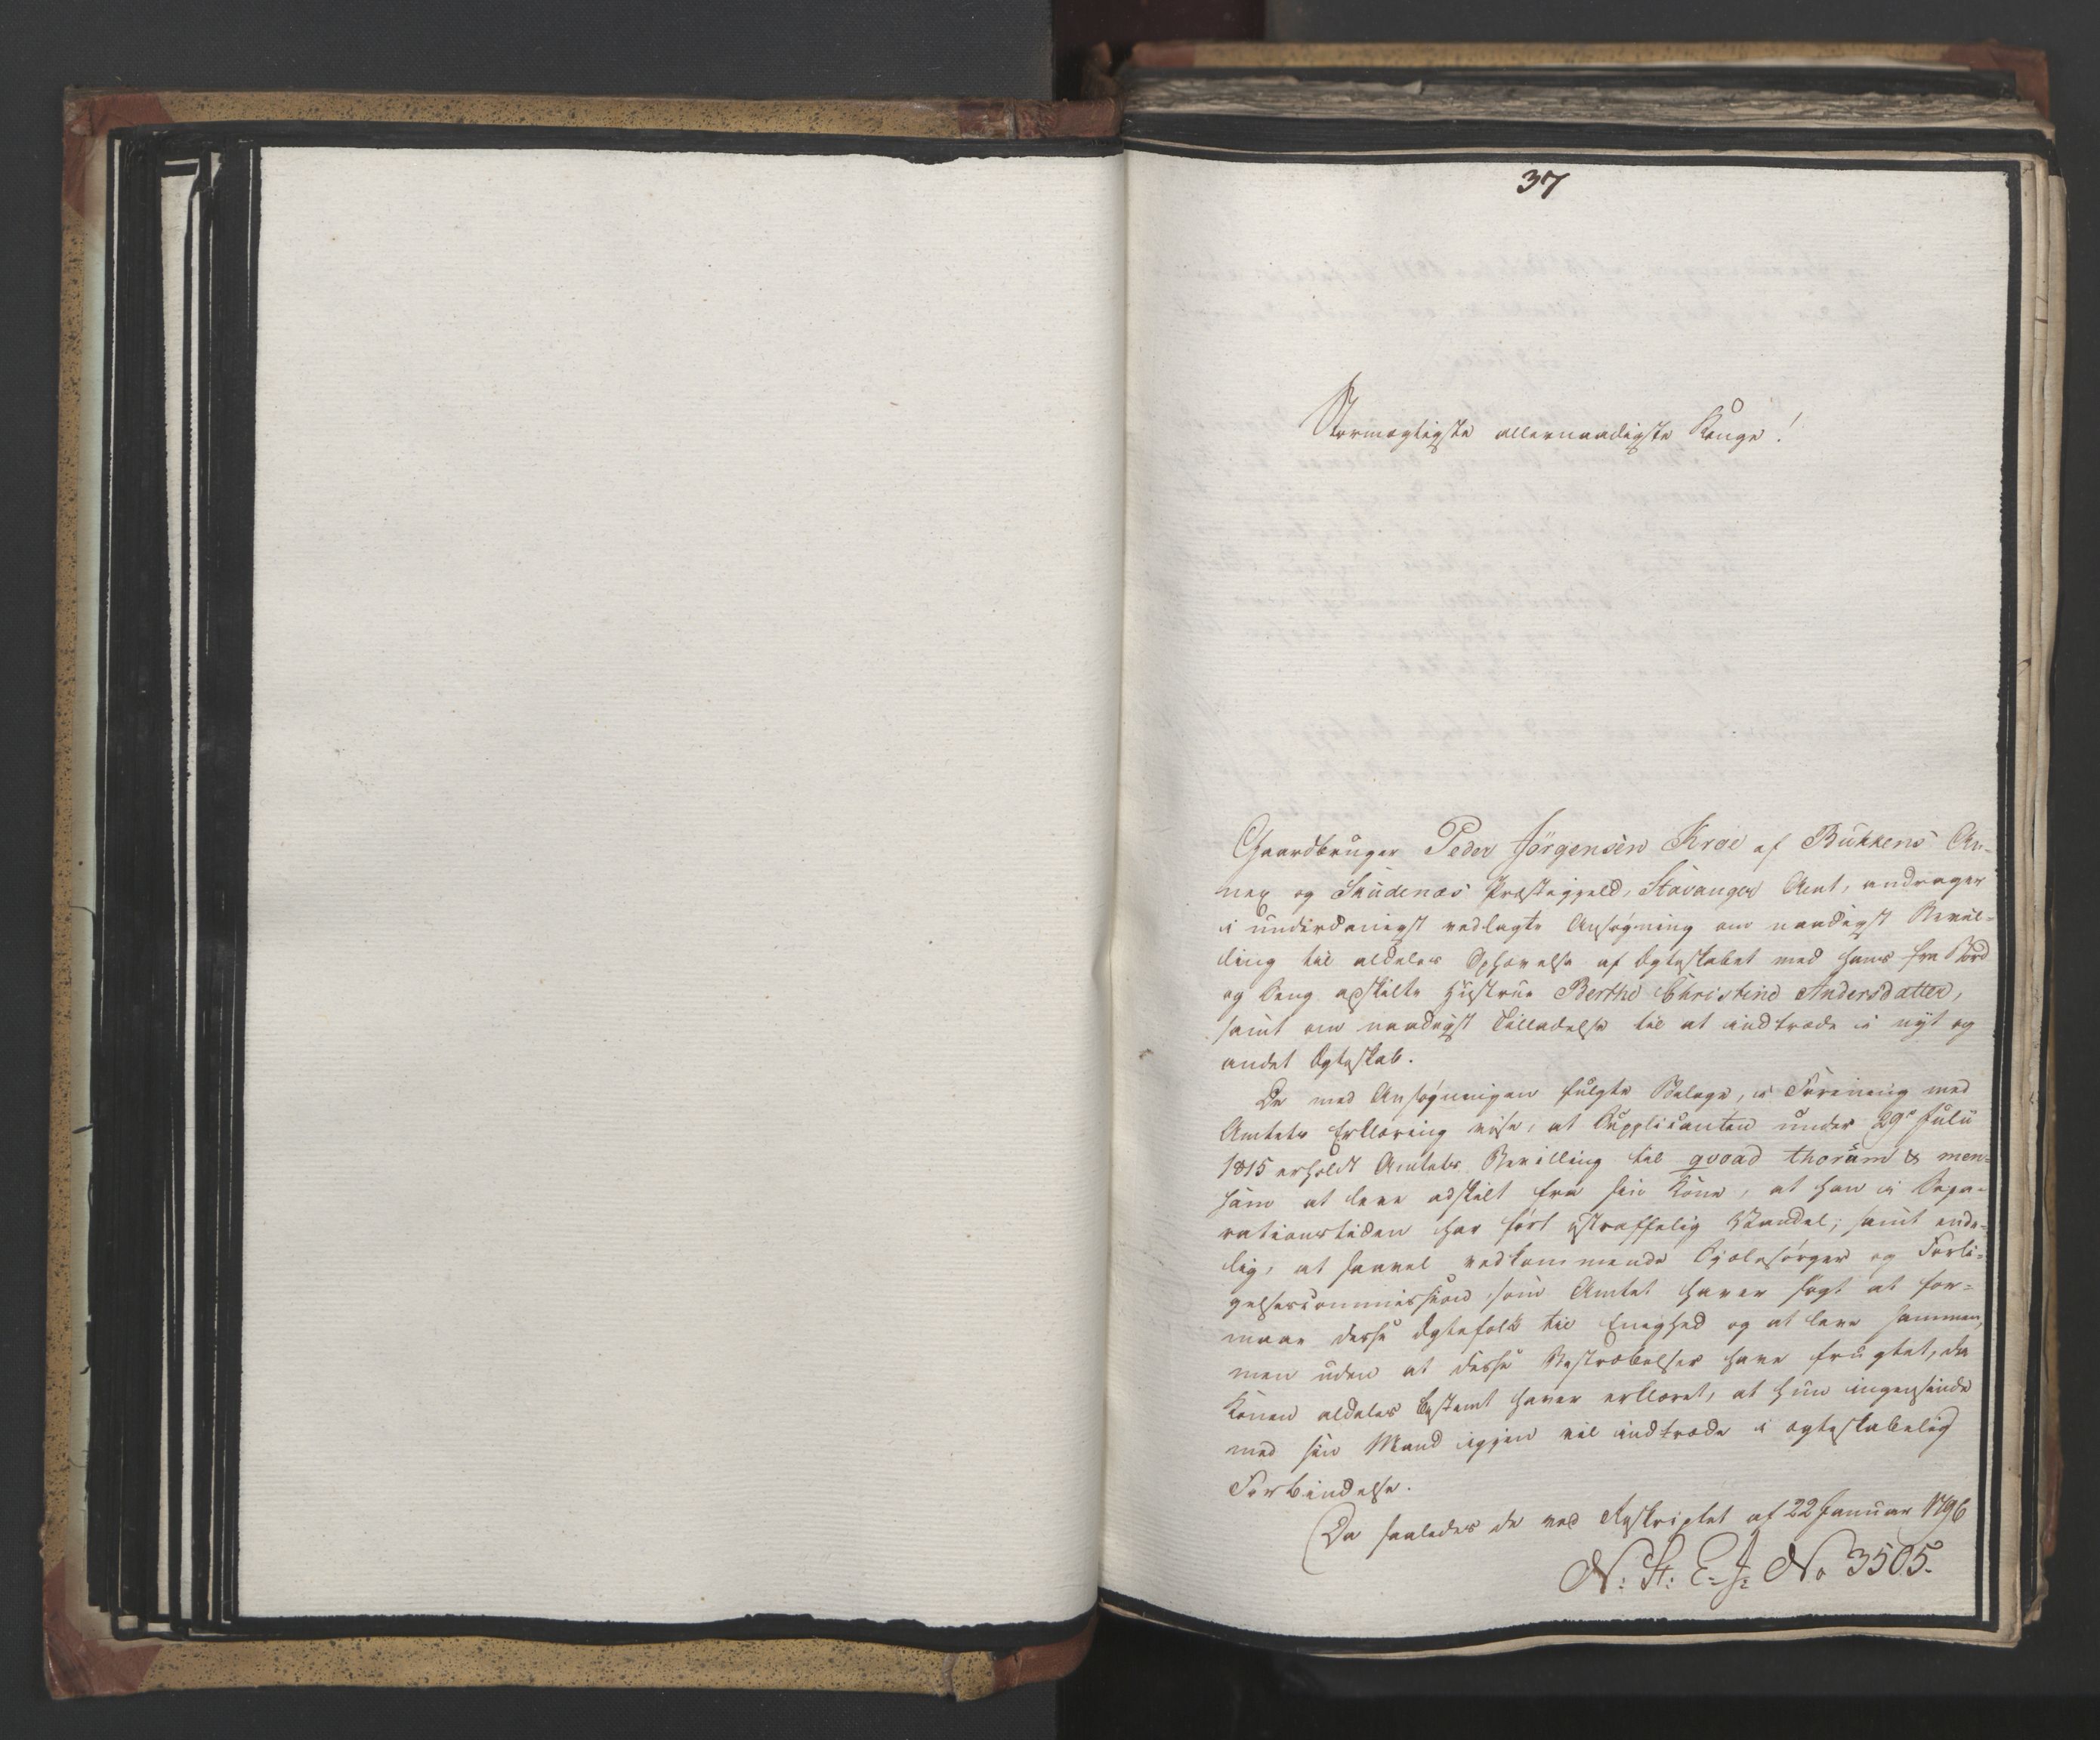 37
Stormægtigste allernaadigste Konge!
Gaardbruger Peder Jörgensen Kroe af Bukkens An-
nex og Skudenæs Præstegjeld, Stavanger Amt, andrager
i underdanigst vedlagte Ansøgning om naadigst Bevil-
ling til aldeles Ophævelse af Ægteskabet med hans fra Bord
og Seng adskilte Hustrue Berthe Christine Andersdatter,
samt om naadigst Tilladelse til at indtræde i nyt og
andet Ægteskab.
De med Ansøgningen fulgte Bilage, i Forening med
Amtets Erklæring vise, at Supplicanten under 29de Julii
1815 erholdt Amtets Bevilling til qvoad thorum & men-
sam at leve adskilt fra sin Kone, at han i Sepa-
rationstiden har ført ustraffelig Vandel; samt ende-
lig, at saavel vedkommende Sjælesørger og Forli-
gelsescommission som Amtet haver søgt at for-
maae disse Ægtefolk til Enighed og at leve sammen,
men uden at disse Bestræbelser have frugtet, da
Konen aldeles bestemt haver erklæret, at hun ingensinde
med sin Mand igjen vil indtræde i ægteskabelig
Forbindelse.
Da saaledes de ved Reskriptet af 22 Januar 1796
N: St: E: J: No 3505.